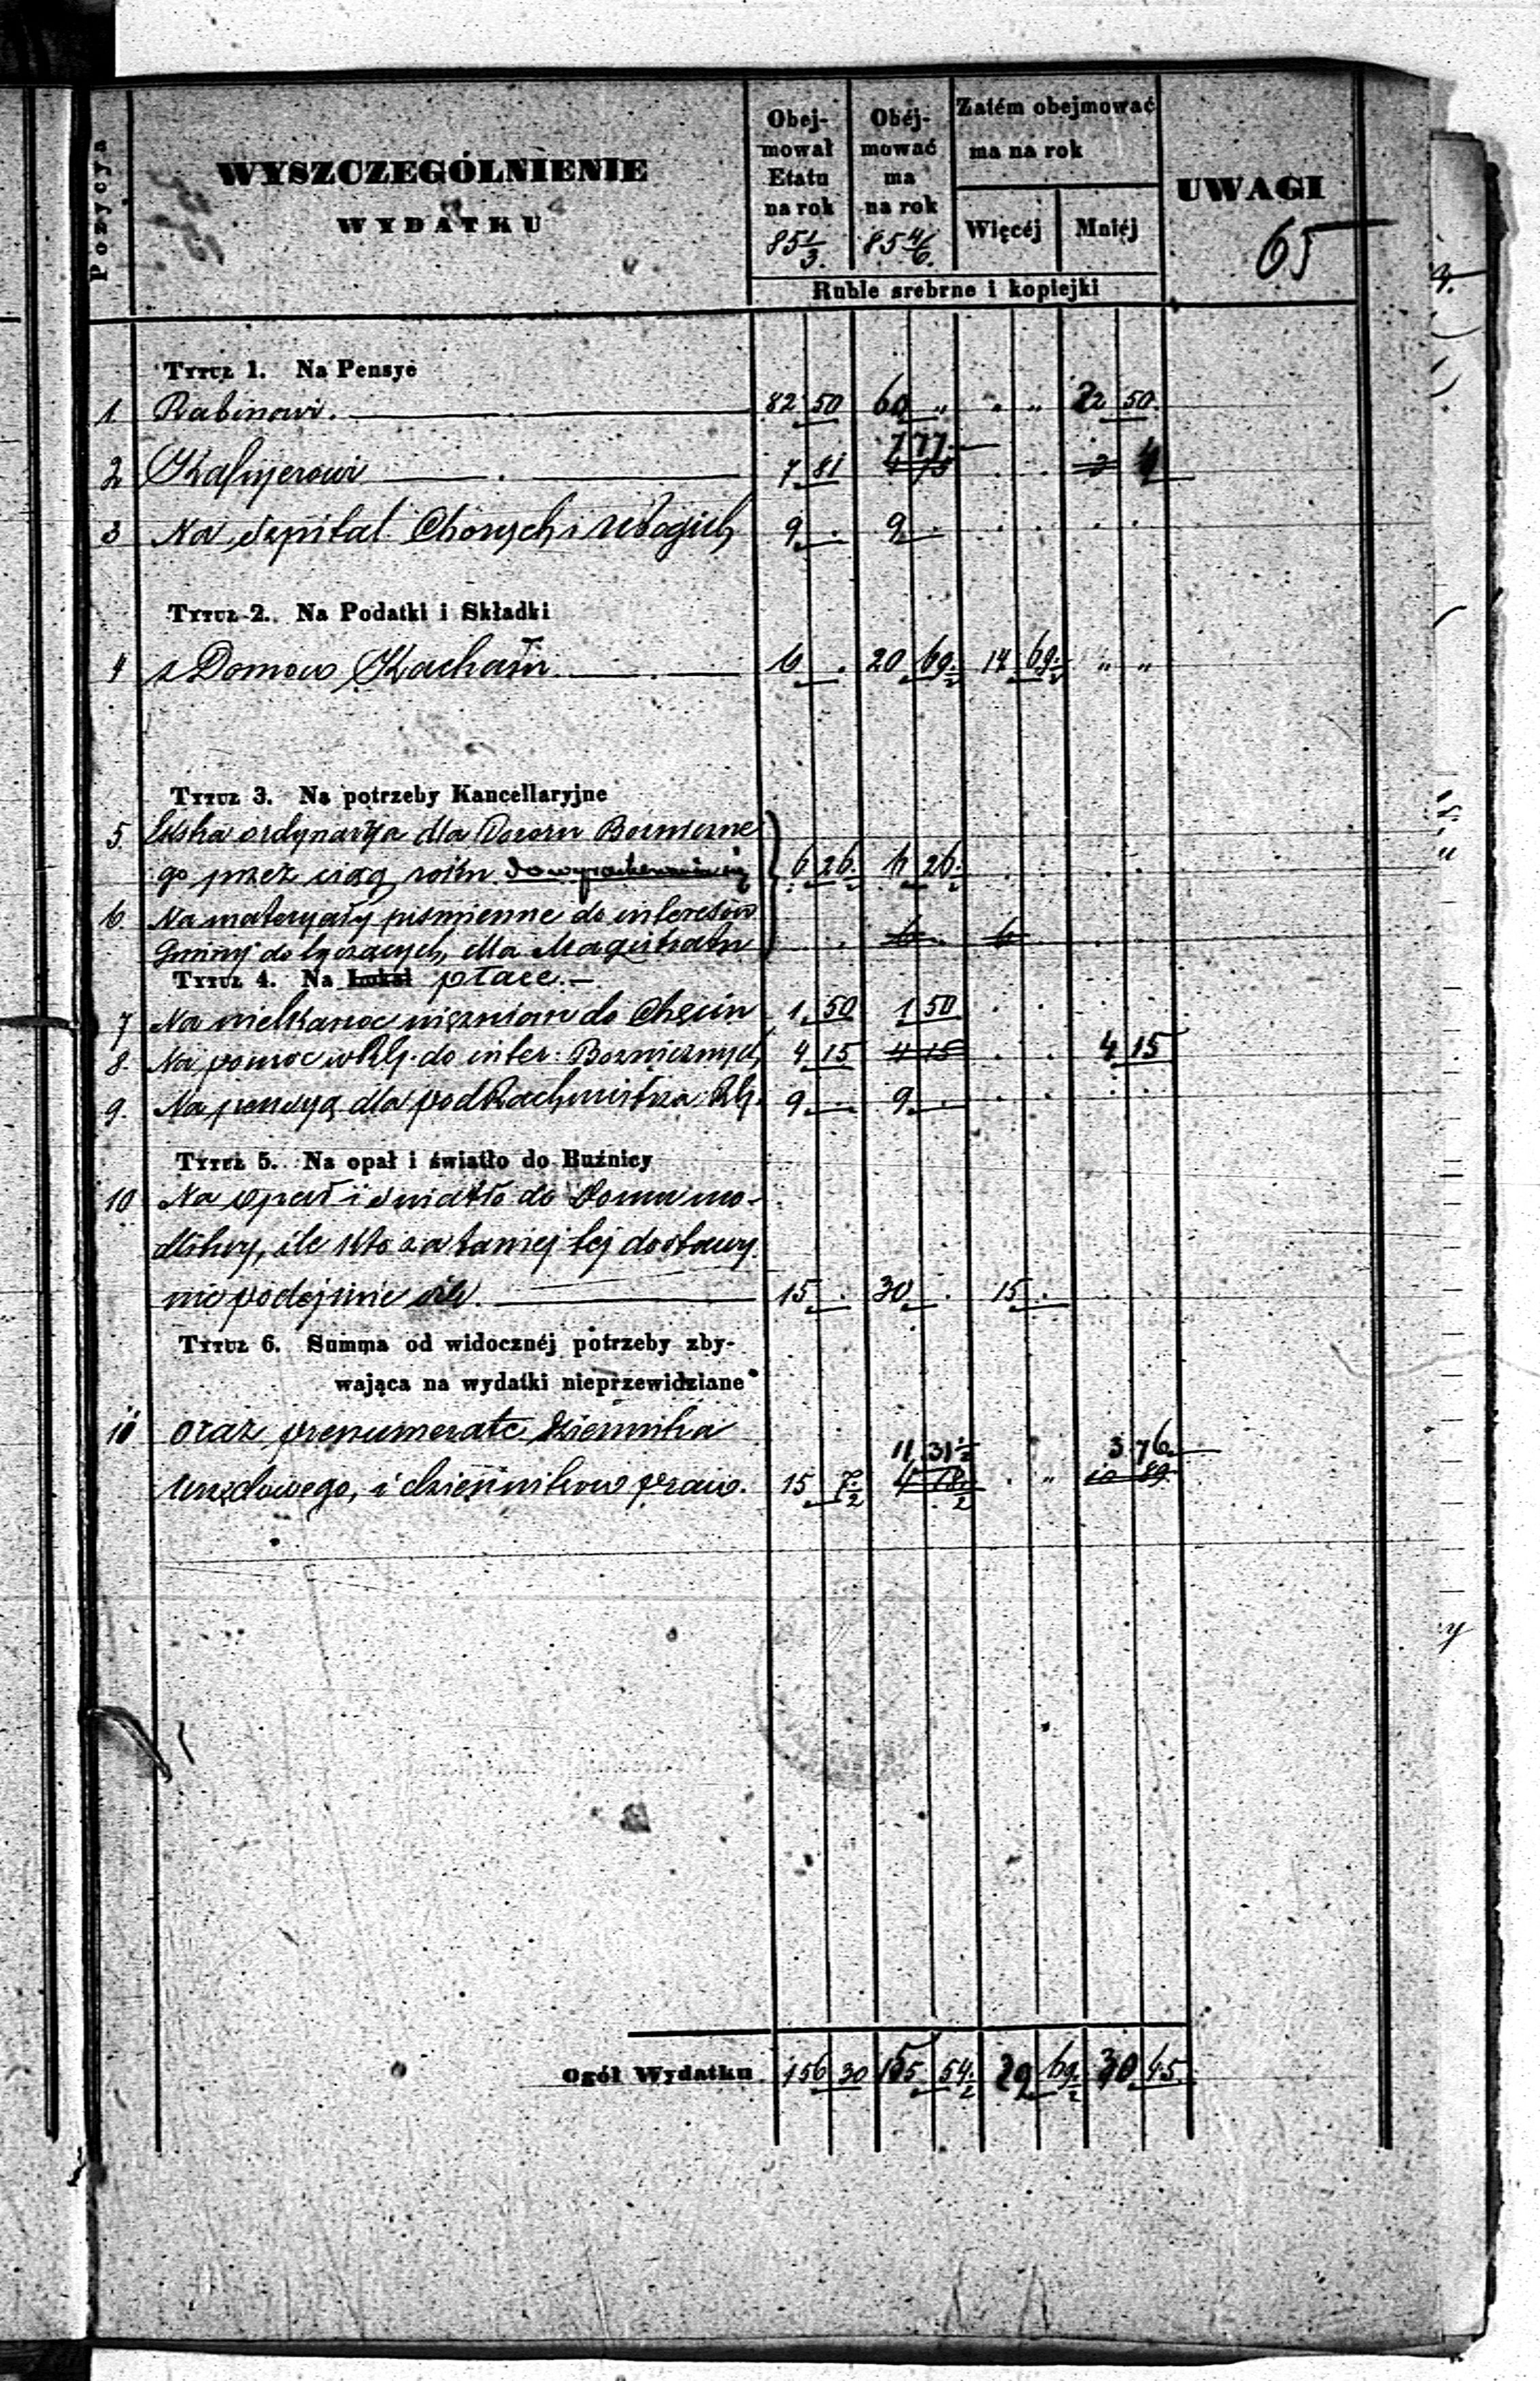 Pozycya
WYSZCZEGÓLNIENIE
WYDATKU
Obej-
mował
Etatu
na rok
85 1/3.
Obéj-
mować
ma
na rok
85 4/6.
Zatém obejmować
ma na rok
Więcéj
Mniéj
Ruble srebrne i kopiejki
UWAGI
65
Tytuł 1. Na Pensye
1. Rabinowi. 82 50 60 „ „ „ 22 50.
7 77
2 Kassyerowi 7 81 4 75 . . 3 4
3 Na Szpital Chorych i Ubogich 9 . 9 . . . . .
Tytuł 2. Na Podatki i Składki
4 z Domow Kachaln. 6 . 20 69 1/2 14 69 1/2 „ „
Tytuł 3. Na potrzeby Kancellaryjne
5. ordynaryja dla Dozoru Boznicne
go przez ciąg roku 6 26 1/2 6 26 1/2 . . . .
6. Na materyały piśmienne do interesów
Gminy do tyczących, dla Magistratu . . 6 . 6 . . .
Tytuł 4. Na Lokal płace.—
7 Na wielkanoc więzniom do Chęcin 1 50 1 50 . . . .
8. Na pomoc w Kły. do inter: Boznicznych 4 15 4 15 . . 4 15
9. Na pensyą dla podRachmistrza 9 . 9 . . . . .
Tytuł 5. Na opał i światło do Buźnicy
10 Na opał i swiatło do Domu mo-
dlitwy, ile kto za taniej tej dostawy
nie podejmie się. 15 . 30 . 15 . . .
Tytuł 6. Summa od widocznéj potrzeby zby-
wająca na wydatki nieprzewidziane
11 oraz prenumeratę Dziennika
11 31 1/2 3 76
Urzędowego, i dzienników praw. 15 7 1/2 4 18 1/2 . „ 10 89
Ogół Wydatku 156 30 155 54 1/2 29 69 1/2 30 45